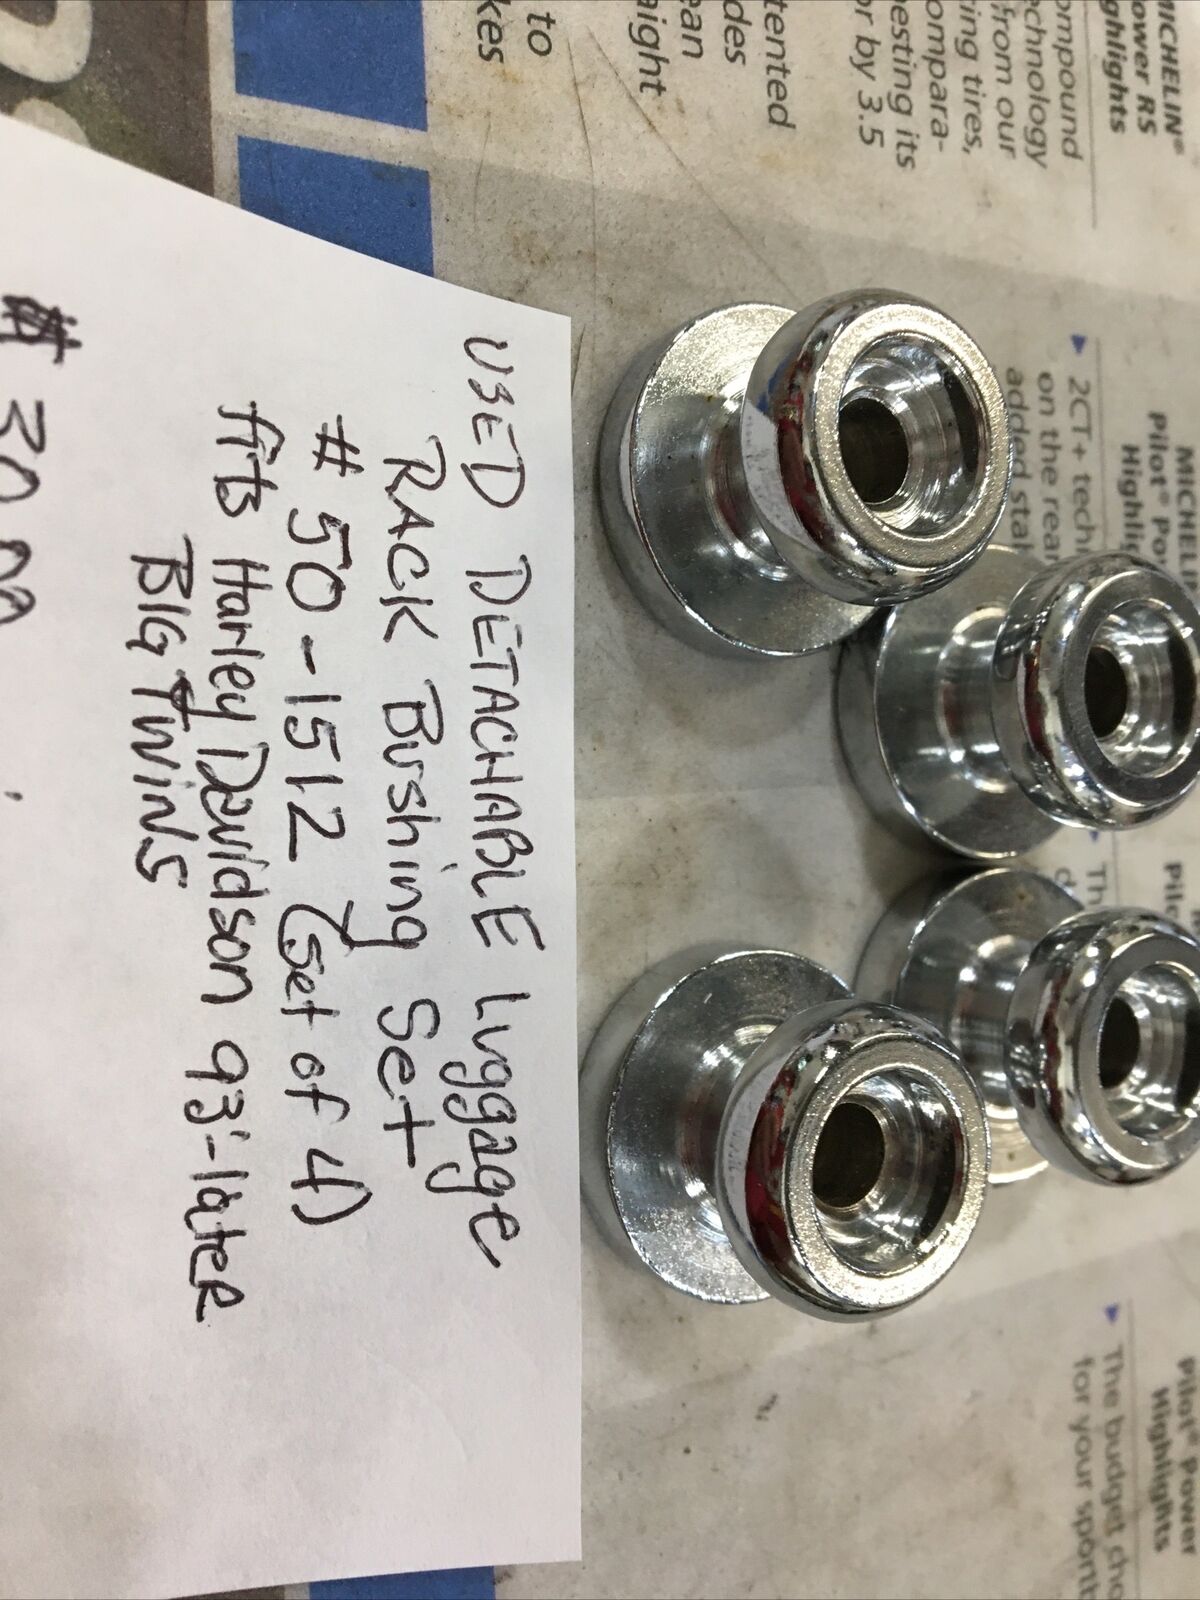 USED DETACHABLE Luggage
RACK Bushing Set
# 50-1512 (Set of 4)
fits Harley Davidson 93'-lateR
BIG TWINS
$ 30.00
MICHELIN®
Power RS
Highlights
compound
technology
from our
tires,
compara-
its
or by 3.5
des
to
MICHELIN
Pilot® Po
Highli
2CT+ tech
on the rear
added stab
Pilot® Power
Highlights
The budget
for your sport